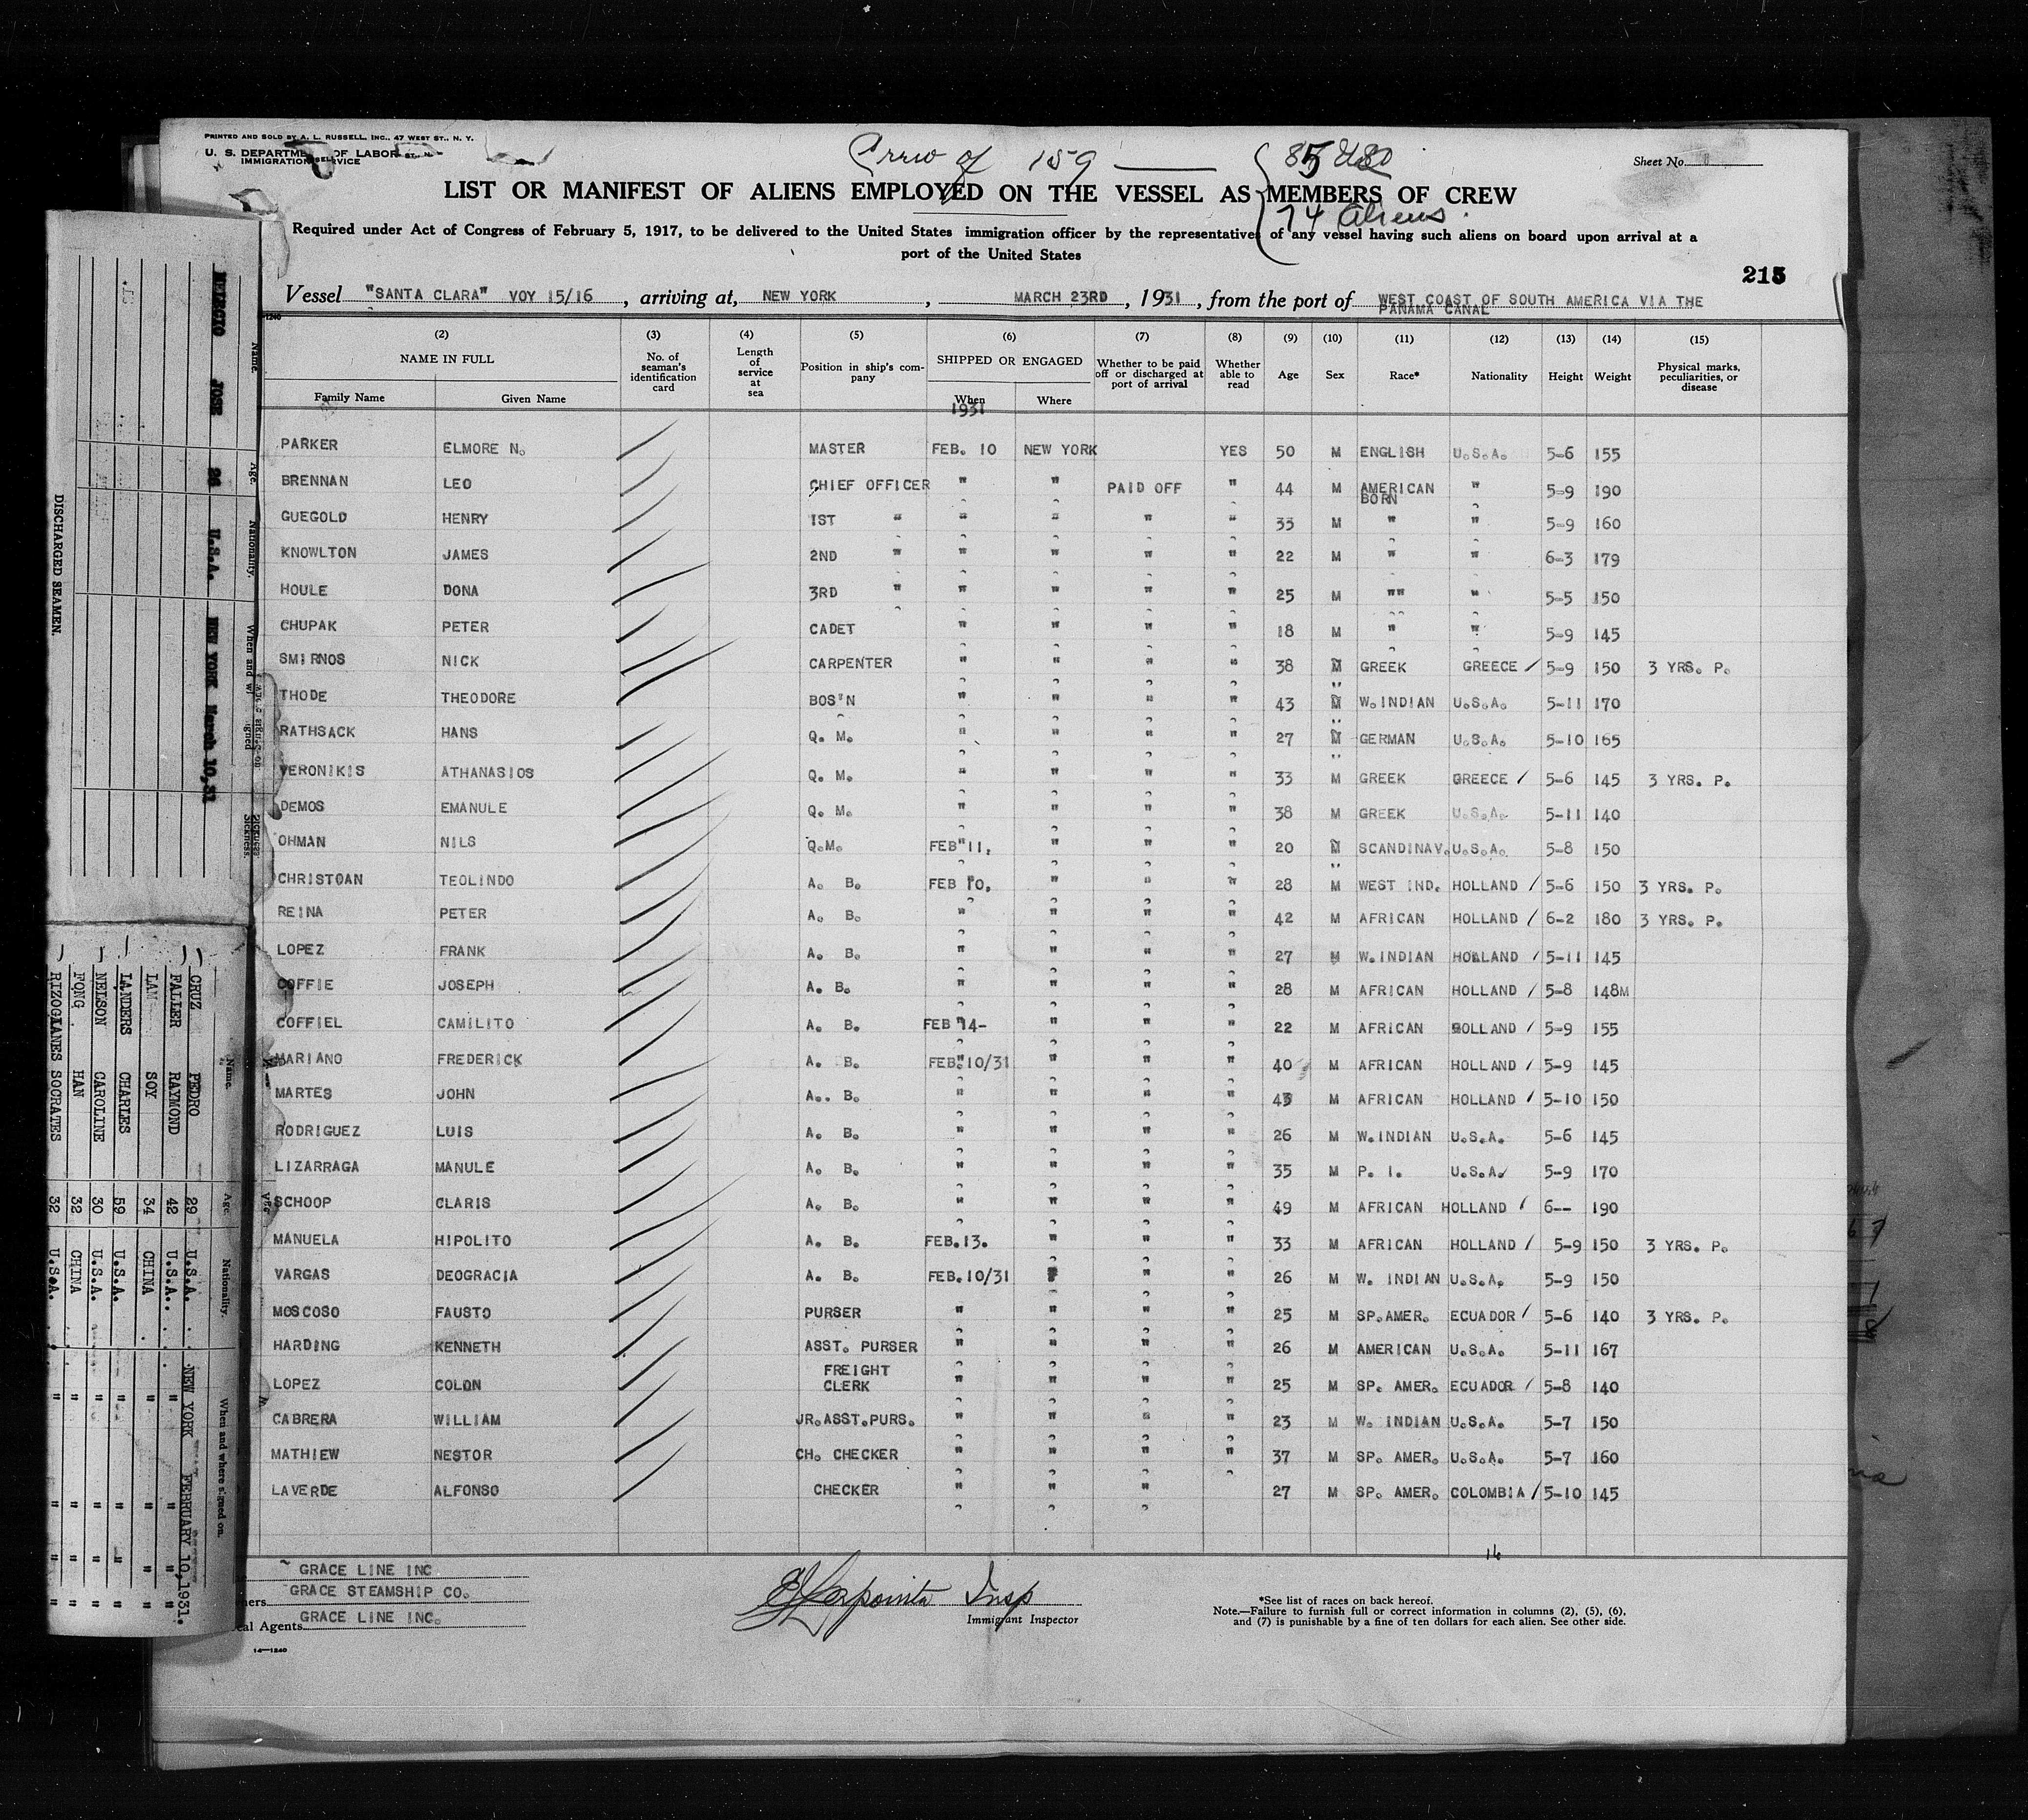 PRINTED AND SOLD BY A. L. RUSSELL, INC., 47 WEST ST., N. Y.
U. S. DEPARTMENT OF LABOR
IMMIGRATION SERVICE
Crew of 159
74 Aliens
Sheet No.
LIST OR MANIFEST OF ALIENS EMPLOYED ON THE VESSEL AS MEMBERS OF CREW
Required under Act of Congress of February 5, 1917, to be delivered to the United States immigration officer by the representative of any vessel having such aliens on board upon arrival at a
port of the United States
215
Vessel "SANTA CLARA" VOY 15/16, arriving at, NEW YORK, MARCH 23RD, 1931, from the port of WEST COAST OF SOUTH AMERICA VIA THE
PANAMA CANAL
(2) (3) (4) (5) (6) (7) (8) (9) (10) (11) (12) (13) (14) (15)
NAME IN FULL No. of seaman's identification card Length of service at sea Position in ship's company SHIPPED OR ENGAGED Whether to be paid off or discharged at port of arrival Whether able to read Age Sex Race* Nationality Height Weight Physical marks, peculiarities, or disease
Family Name Given Name When Where
1931
PARKER ELMORE N. MASTER FEB. 10 NEW YORK YES 50 M ENGLISH U.S.A. 5-6 155
BRENNAN LEO CHIEF OFFICER " " PAID OFF " 44 M AMERICAN BORN " 5-9 190
GUEGOLD HENRY 1ST " " " " " 33 M " " 5-9 160
KNOWLTON JAMES 2ND " " " " " 22 M " " 6-3 179
HOULE DONA 3RD " " " " " 25 M "" " 5-5 150
CHUPAK PETER CADET " " " " 18 M " " 5-9 145
SMIRNOS NICK CARPENTER " " " " 38 M GREEK GREECE / 5-9 150 3 YRS. P.
THODE THEODORE BOS'N " " " " 43 M W.INDIAN U.S.A. 5-11 170
RATHSACK HANS Q. M. " " " " 27 M GERMAN U.S.A. 5-10 165
VERONIKIS ATHANASIOS Q. M. " " " " 33 M GREEK GREECE / 5-6 145 3 YRS. P.
DEMOS EMANULE Q. M. " " " " 38 M GREEK U.S.A. 5-11 140
OHMAN NILS Q.M. FEB 11. " " " 20 M SCANDINAV. U.S.A. 5-8 150
CHRISTOAN TEOLINDO A. B. FEB 10. " " " 28 M WEST IND. HOLLAND / 5-6 150 3 YRS. P.
REINA PETER A. B. " " " " 42 M AFRICAN HOLLAND / 6-2 180 3 YRS. P.
LOPEZ FRANK A. B. " " " " 27 M W.INDIAN HOLLAND / 5-11 145
COFFIE JOSEPH A. B. " " " " 28 M AFRICAN HOLLAND / 5-8 148M
COFFIEL CAMILITO A. B. FEB 14- " " " 22 M AFRICAN HOLLAND / 5-9 155
MARIANO FREDERICK A. B. FEB. 10/31 " " " 40 M AFRICAN HOLLAND / 5-9 145
MARTES JOHN A.. B. " " " " 43 M AFRICAN HOLLAND / 5-10 150
RODRIGUEZ LUIS A. B. " " " " 26 M W.INDIAN U.S.A. 5-6 145
LIZARRAGA MANULE A. B. " " " " 35 M P. I. U.S.A. 5-9 170
SCHOOP CLARIS A. B. " " " " 49 M AFRICAN HOLLAND / 6-- 190
MANUELA HIPOLITO A. B. FEB.13. " " " 33 M AFRICAN HOLLAND / 5-9 150 3 YRS. P.
VARGAS DEOGRACIA A. B. FEB.10/31 " " " 26 M W. INDIAN U.S.A. 5-9 150
MOSCOSO FAUSTO PURSER " " " " 25 M SP.AMER. ECUADOR / 5-6 140 3 YRS. P.
HARDING KENNETH ASST. PURSER " " " " 26 M AMERICAN U.S.A. 5-11 167
LOPEZ COLON FREIGHT CLERK " " " " 25 M SP. AMER. ECUADOR / 5-8 140
CABRERA WILLIAM JR.ASST.PURS. " " " " 23 M W. INDIAN U.S.A. 5-7 150
MATHIEW NESTOR CH. CHECKER " " " " 37 M SP. AMER. U.S.A. 5-7 160
LAVERDE ALFONSO CHECKER " " " 27 M SP. AMER. COLOMBIA / 5-10 145
16
GRACE LINE INC
GRACE STEAMSHIP CO.
GRACE LINE INC.
Insp
Immigrant Inspector
*See list of races on back hereof.
Note.—Failure to furnish full or correct information in columns (2), (5), (6),
and (7) is punishable by a fine of ten dollars for each alien. See other side.
14—1240
DISCHARGED SEAMEN.
Name. Age. Nationality.
JOSE 26 U.S.A. NEW YORK March 10,31
Name. Age. Nationality. When and where signed on.
CRUZ PEDRO 29 U.S.A. NEW YORK FEBRUARY 10,1931.
FALLER RAYMOND 42 U.S.A. " " " "
LAM SOY 34 CHINA " " " "
LANDERS CHARLES 59 U.S.A. " " " "
NELSON CAROLINE 30 U.S.A. " " " "
FONG HAN 32 CHINA " " " "
RIZOGIANES SOCRATES 32 U.S.A. " " " "